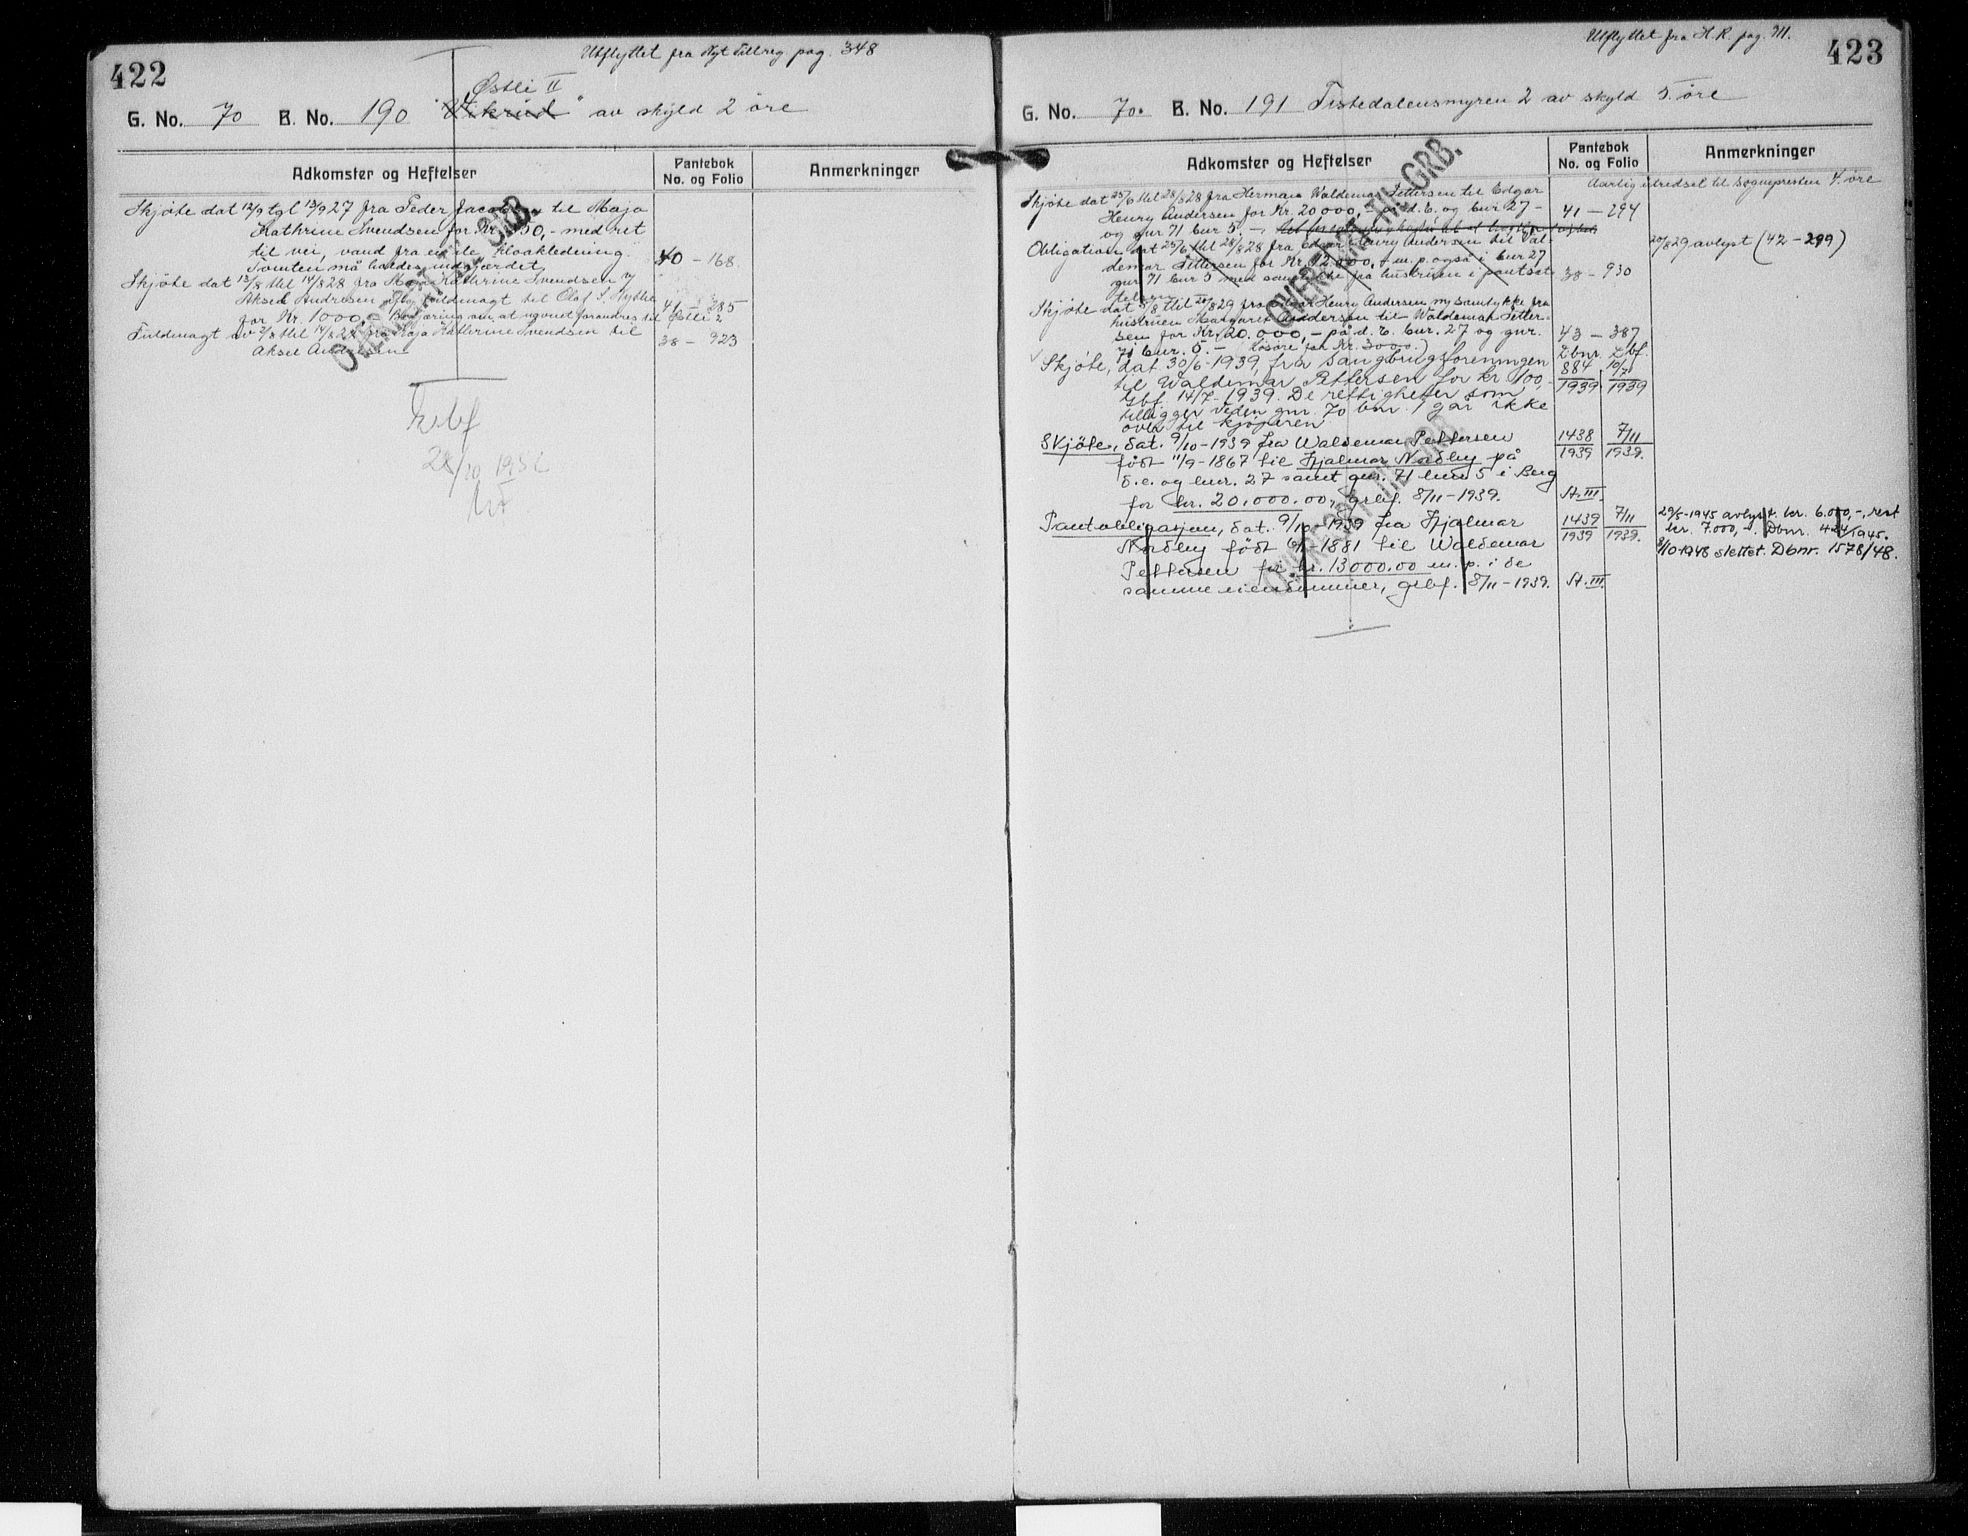 422
Utflyttet fra Nyt tillreg. pag. 348
Østli II
G. No. 70 B. No. 190 "Vikrud" av skyld 2 øre
Adkomster og Heftelser
Pantebok
No. og Folio
Anmerkninger
Skjøte dat 12/9 tgl 13/9 27 fra Peder Jacobsen til Maja
Kathrine Svendsen for Kr. 50,- med ret
til vei, vand fra kloakledning.
Tomten må holdes indgjærdet. 40 - 168.
Skjøte dat 13/8 thl 14/8 28 fra Maja Kathrine Svendsen v/
Aksel Andresen fuldmagt til Olaf S. Nythe
for Kr. 1000, Begjæring om at navnet forandres til Østli 2 41 - 385
Fuldmagt av 2/8 thl 14/8 28 fra Maja Kathrine Svendsen til
Aksel Andresen 38 - 923
OVERFØRT TIL GRB.
28/10 1952
423
Utflyttet fra H.R. pag. 711.
G. No. 70. B. No. 191 Tistedalensmyren 2 av skyld 5 øre
Adkomster og Heftelser
Pantebok
No. og Folio
Anmerkninger
Aarlig utredsel til sognepresten 4 øre
Skjøte dat 25/6 thl 28/8 28 fra Herman Waldemar Pettersen til Edgar
Henry Andersen for Kr. 20000,- på d. e. og bnr 27 - 41 - 294
og gnr 71 bnr 5. -
Obligation dat 25/6 thl 28/8 28 fra Edgar Henry Andersen til Val- 20/8 29 avlyst (42 - 299)
demar Pettersen for Kr. 12000, - m. p. også i bnr 27
gnr 71 bnr 5 med samtykke fra hustruen i pantsæt- 38 - 930
telsen
Skjøte dat 5/8 thl 20/8 29 fra Edgar Henry Andersen m/ samtykke fra
hustruen Margaret Andersen til Waldemar Petter-
sen for Kr. 20.000, - på d. e. bnr. 27 og gnr. 43 - 387
71 bnr. 5. - (løsøre for Kr. 3000.) Dbnr. Dbf.
Skjøte, dat 30/6-1939, fra Saugbrugsforeningen 884 10/7
til Waldemar Pettersen for kr 100,- 1939 1939
Gbf. 14/7-1939. De rettigheter som
tilligger veden gnr. 70 bnr. 1 går ikke
over til kjøperen
Skjøte, dat. 9/10-1939 fra Waldemar Pettersen 1438 7/11
født 11/9-1867 til Hjalmar Nordby på 1939 1939.
d.e. og bnr. 27 samt gnr. 71 bnr 5 i Berg
for kr. 20.000.00, grbf. 8/11-1939. St. III.
Pantobligasjon, dat. 9/10-1939 fra Hjalmar 1439 7/11 29/5-1945 avlyst kr. 6.000,-, rest
Nordby født 6/1-1881 til Waldemar 1939 1939. kr. 7.000,-. Dbnr. 424/1945.
Pettersen for kr. 13000.00 m. p. i de 8/10 1948 slettet. Dbnr. 1578/48.
samme eiendommer, grbf. 8/11-1939. St. III.
OVERFØRT TIL GRB.
OVERFØRT TIL GRB.